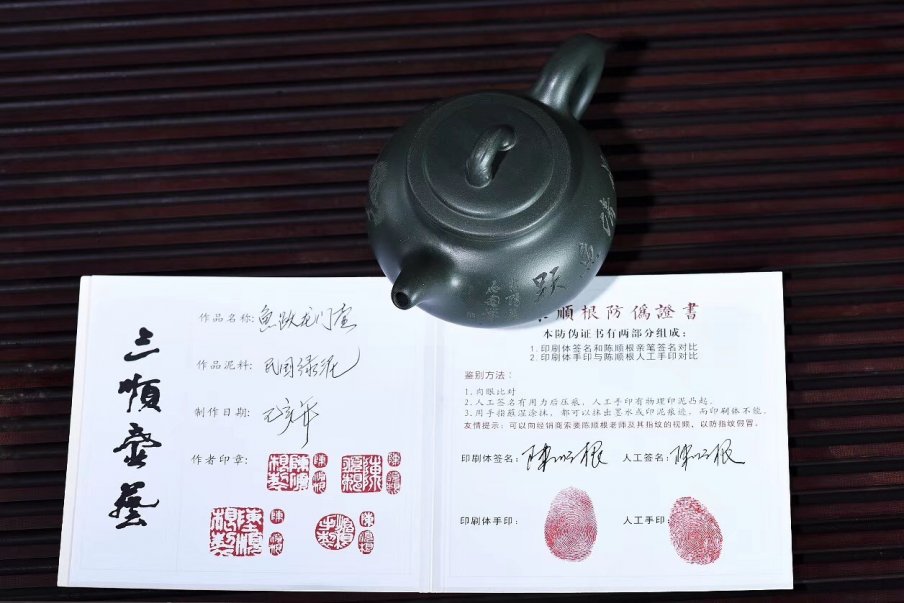 三順壺藝
作品名称:魚跃龙门壶
作品泥料:民国绿泥
制作日期:己亥年
作者印章:
順根防偽證書
本防伪证书有两部分组成:
1.印刷体签名和陈顺根亲笔签名对比
2.印刷体手印与陈顺根人工手印对比
鉴别方法:
1.肉眼比对
2.人工签名有用力后压痕,人工手印有物理印泥凸起。
3.用手指蘸湿涂抹,都可以抹出墨水或印泥痕迹,而印刷体不能。
友情提示:可以向经销商索要陈顺根老师及其指纹的视频,以防指纹假冒。
印刷体签名:陈顺根 人工签名:陈顺根
印刷体手印: 人工手印:
跃